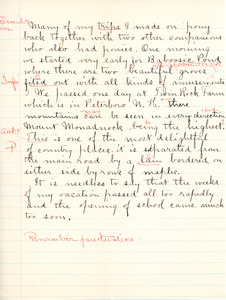 Many of my trips I made on pony
back together with two other companions
who also had ponies. One morning
we started very early for Baboosic Pond
where there are two beautiful groves
fited out with all kinds of amusements
We passed one day at Twin Rock Farm
which is in Peterboro N. H.
mountains can be seen in every direction
Mount Monadnock being the highest.
This is one of the most delightful
of country places. it is separated from
the main road by a lain bordered on
either side by rows of maples.
It is needless to say that the weeks
of my vacation passed all too rapidly
and the opening of school came much
too soon.
Remember punctuation